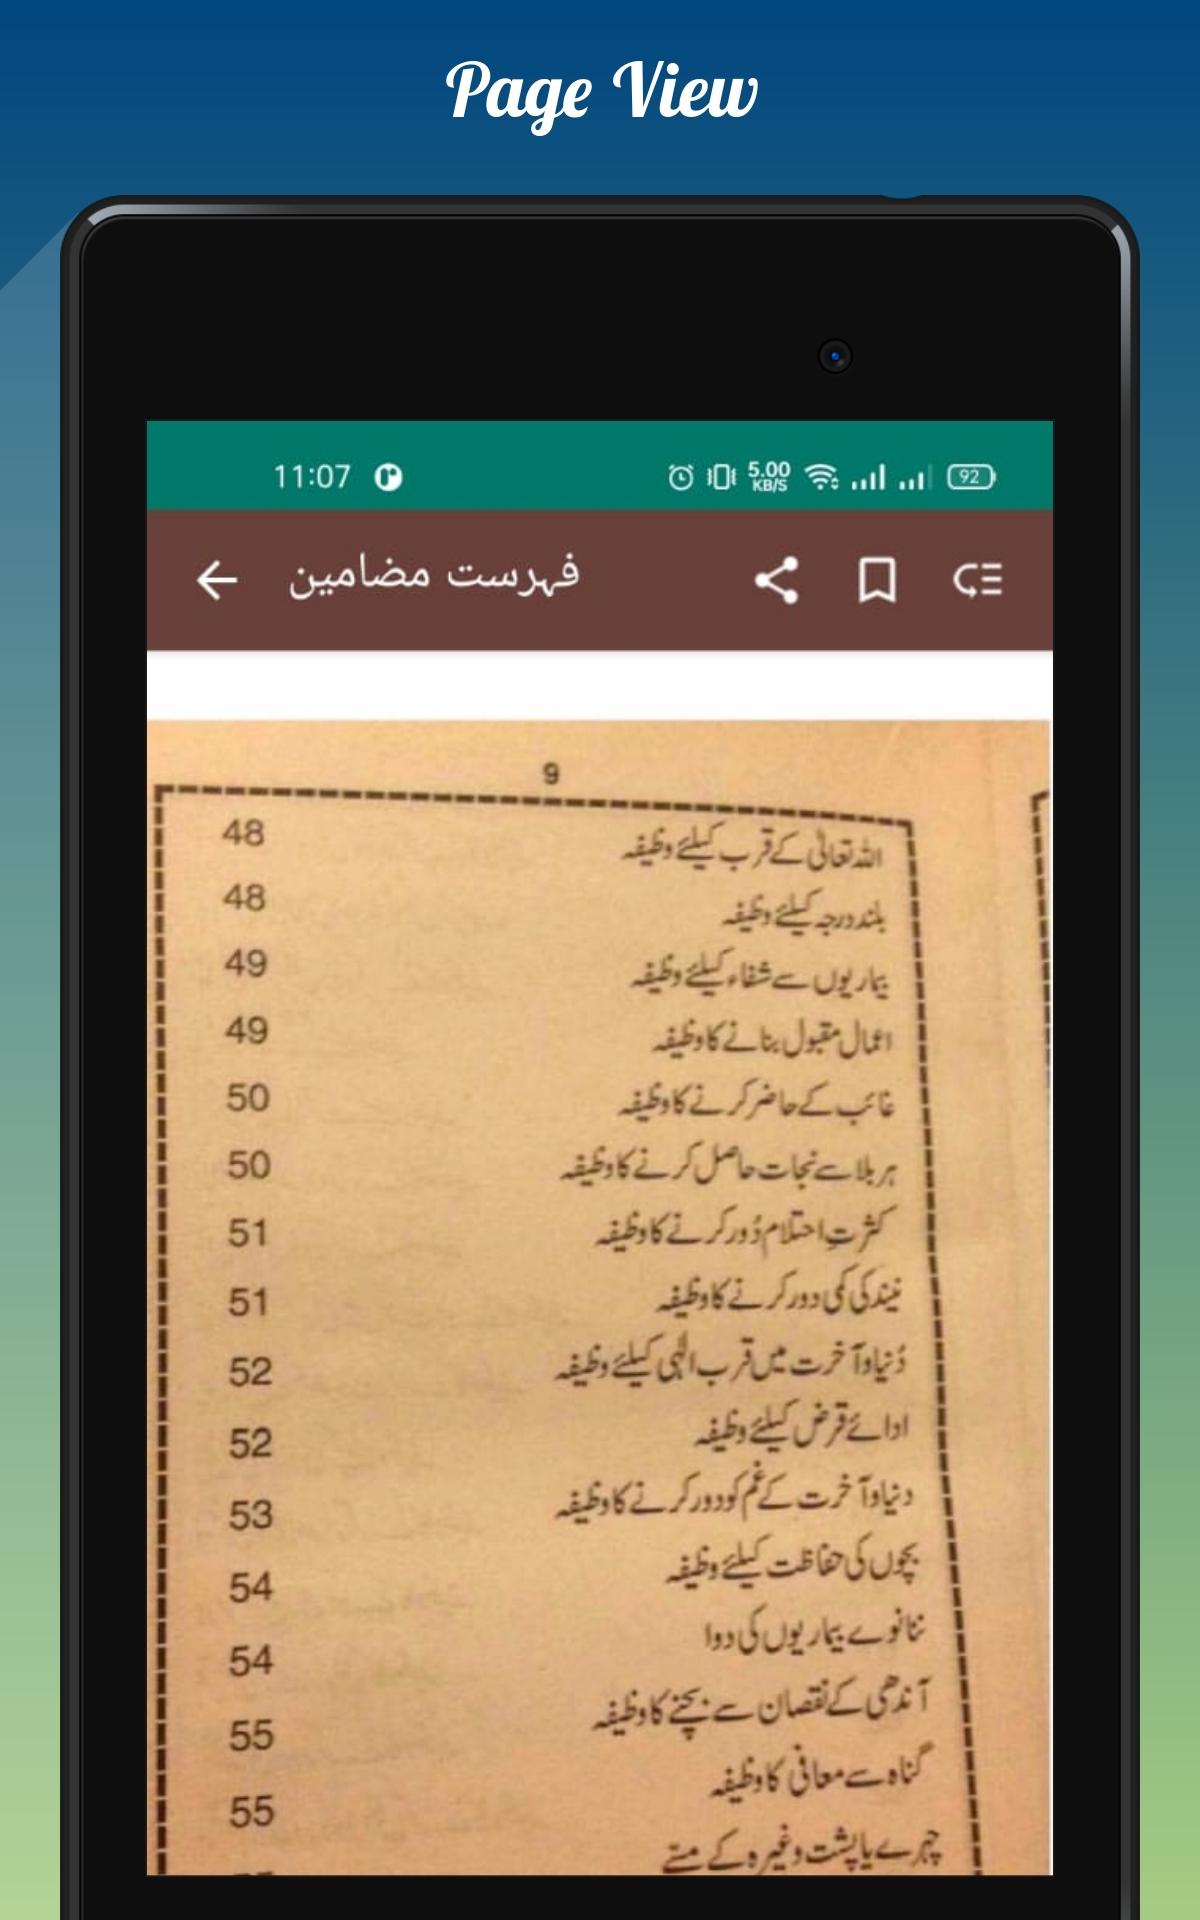 Page View
11:07
5.00
KB/S
92
فہرست مضامین
9
اللہ تعالیٰ کے قرب کیلئے وظیفہ 48
بلند درجہ کیلئے وظیفہ 48
بیماریوں سے شفاء کیلئے وظیفہ 49
اعمال مقبول بنانے کا وظیفہ 49
غائب کے حاضر کرنے کا وظیفہ 50
ہر بلا سے نجات حاصل کرنے کا وظیفہ 50
کثرتِ احتلام دُور کرنے کا وظیفہ 51
نیند کی کمی دور کرنے کا وظیفہ 51
دُنیا و آخرت میں قرب الٰہی کیلئے وظیفہ 52
ادائے قرض کیلئے وظیفہ 52
دنیا و آخرت کے غم کو دور کرنے کا وظیفہ 53
بچوں کی حفاظت کیلئے وظیفہ 54
ننانوے بیماریوں کی دوا 54
آندھی کے نقصان سے بچنے کا وظیفہ 55
گناہ سے معافی کا وظیفہ 55
چہرے یا پشت وغیرہ کے مسے